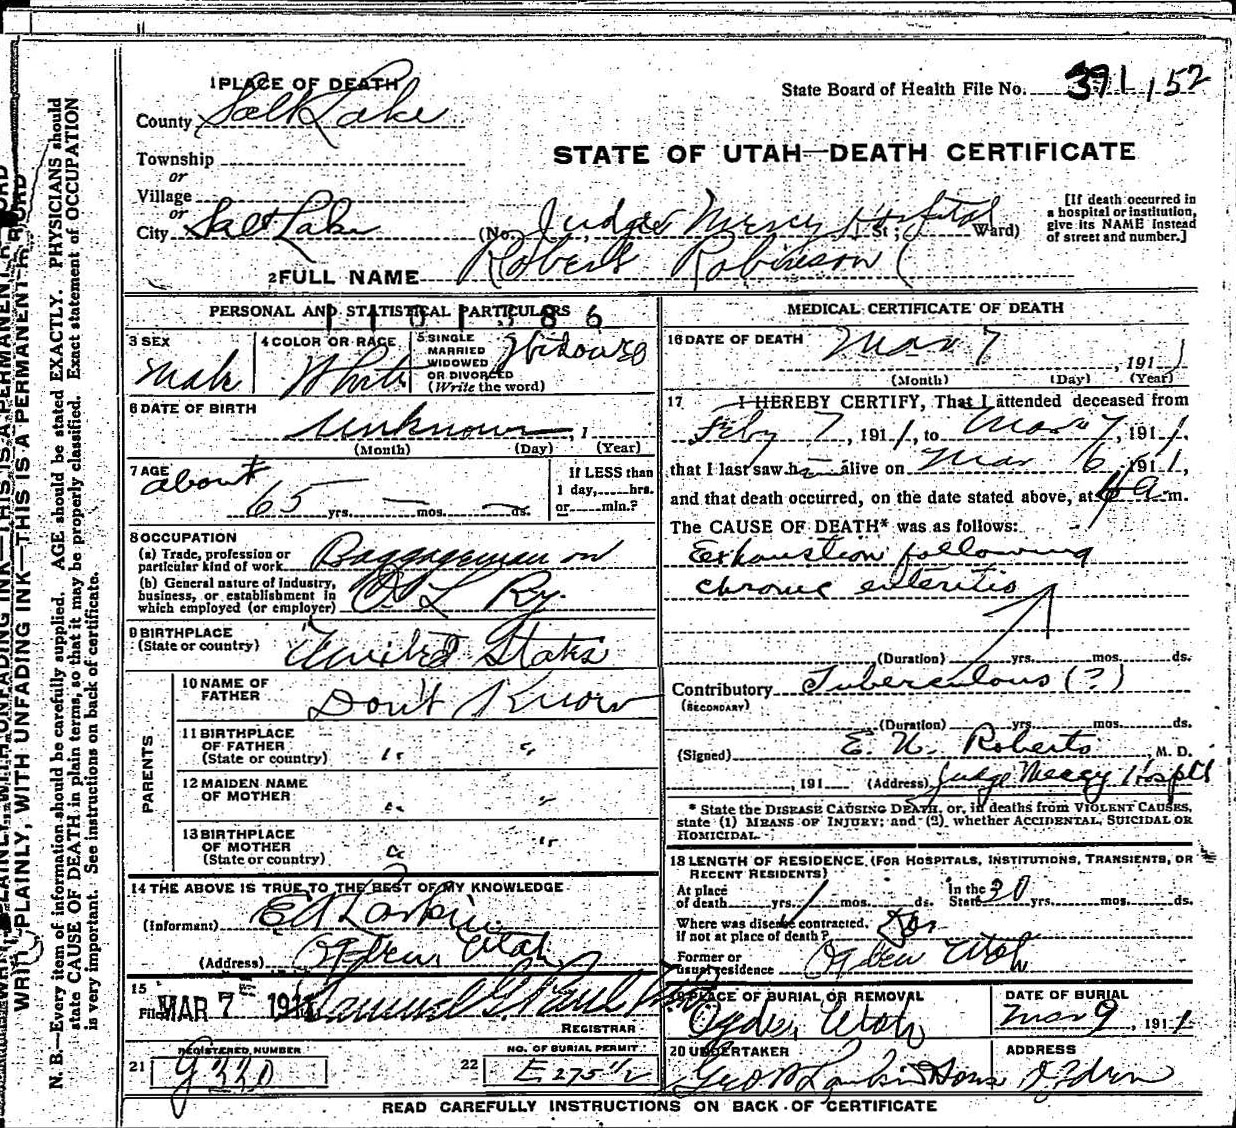 1 PLACE OF DEATH
State Board of Health File No. 391, 152
County Salt Lake
STATE OF UTAH—DEATH CERTIFICATE
Township
or
Village
or
City Salt Lake (No. Judge Mercy Hospital St; Ward)
[If death occurred in a hospital or institution, give its NAME instead of street and number.]
2 FULL NAME Robert Robinson
PERSONAL AND STATISTICAL PARTICULARS
1101386
3 SEX Male
4 COLOR OR RACE White
5 SINGLE MARRIED WIDOWED OR DIVORCED (Write the word) Widowed
6 DATE OF BIRTH Unknown, 1
(Month) (Day) (Year)
7 AGE about 65 yrs. — mos. — ds.
If LESS than 1 day, hrs. or min.?
8 OCCUPATION
(a) Trade, profession or particular kind of work Baggageman on
(b) General nature of industry, business, or establishment in which employed (or employer) O S L Ry.
9 BIRTHPLACE (State or country) United States
PARENTS
10 NAME OF FATHER Don't Know
11 BIRTHPLACE OF FATHER (State or country) " "
12 MAIDEN NAME OF MOTHER " "
13 BIRTHPLACE OF MOTHER (State or country) " "
14 THE ABOVE IS TRUE TO THE BEST OF MY KNOWLEDGE
(Informant) Ed Larkin
(Address) Ogden, Utah
15 Filed MAR 7 1911 Samuel G. Paul
REGISTRAR
REGISTERED NUMBER
21 G330
NO. OF BURIAL PERMIT
22 E 275 1/2
MEDICAL CERTIFICATE OF DEATH
16 DATE OF DEATH Mar 7, 1911
(Month) (Day) (Year)
17 I HEREBY CERTIFY, That I attended deceased from
Feby 7, 1911, to Mar 7, 1911,
that I last saw h— alive on Mar 6, 1911,
and that death occurred, on the date stated above, at 4 a m.
The CAUSE OF DEATH* was as follows:
Exhaustion following
chronic enteritis
(Duration) yrs. mos. ds.
Contributory Tuberculous (?)
(SECONDARY)
(Duration) yrs. mos. ds.
(Signed) E. W. Roberts, M. D.
, 191 (Address) Judge Mercy Hosptl
* State the DISEASE CAUSING DEATH, or, in deaths from VIOLENT CAUSES,
state (1) MEANS OF INJURY; and (2) whether ACCIDENTAL, SUICIDAL OR
HOMICIDAL.
18 LENGTH OF RESIDENCE (FOR HOSPITALS, INSTITUTIONS, TRANSIENTS, OR
RECENT RESIDENTS)
At place of death yrs. 1 mos. ds. In the State 30 yrs. mos. ds.
Where was disease contracted, if not at place of death?
Former or usual residence Ogden Utah
19 PLACE OF BURIAL OR REMOVAL Ogden, Utah
DATE OF BURIAL Mar 9, 1911
20 UNDERTAKER Geo W Larkin & Sons
ADDRESS Ogden
READ CAREFULLY INSTRUCTIONS ON BACK OF CERTIFICATE
WRITE PLAINLY, WITH UNFADING INK—THIS IS A PERMANENT RECORD
N. B.—Every item of information should be carefully supplied. AGE should be stated EXACTLY. PHYSICIANS should
state CAUSE OF DEATH in plain terms, so that it may be properly classified. Exact statement of OCCUPATION
is very important. See instructions on back of certificate.